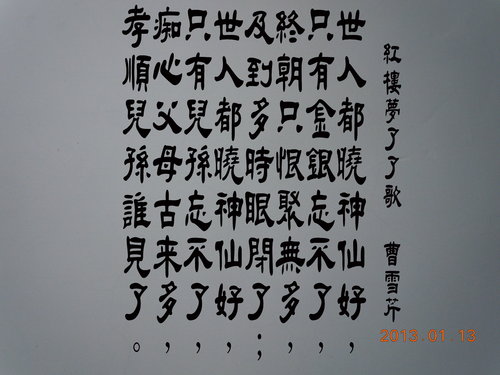 紅樓夢了了歌 曹雪芹
世人都曉神仙好，
只有金銀忘不了，
終朝只恨聚無多，
及到多時眼閉了；
世人都曉神仙好，
只有兒孫忘不了，
痴心父母古来多，
孝順兒孫誰見了。
2013.01.13